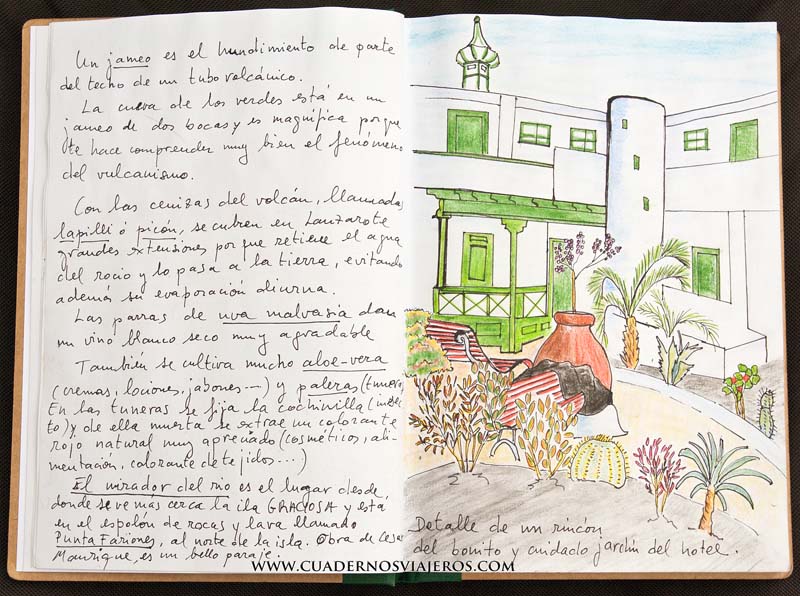 Un jameo es el hundimiento de parte
del techo de un tubo volcánico.
La cueva de los verdes está en un
jameo de dos bocas y es magnífica porque
te hace comprender muy bien el fenómeno
del vulcanismo.
Con las cenizas del volcán, llamadas
lapilli ó picón, se cubren en Lanzarote
grandes extensiones porque retiene el agua
del rocio y lo pasa a la tierra, evitando
además su evaporación diurna.
Las parras de uva malvasia dan
un vino blanco seco muy agradable
También se cultiva mucho aloe-vera
(cremas, lociones, jabones...) y paleras (tuneras)
En las tuneras se fija la cochinilla (insec
to) y de ella muerta se extrae un colorante
rojo natural muy apreciado (cosméticos, ali-
mentación, colorante de tejidos...)
El mirador del rio es el lugar desde,
donde se ve más cerca la isla GRACIOSA y está
en el espolón de rocas y lava llamado
Punta Fariones, al norte de la isla. Obra de Cesar
Manrique, es un bello paraje.
Detalle de un rincón
del bonito y cuidado jardín del hotel.
WWW.CUADERNOSVIAJEROS.COM